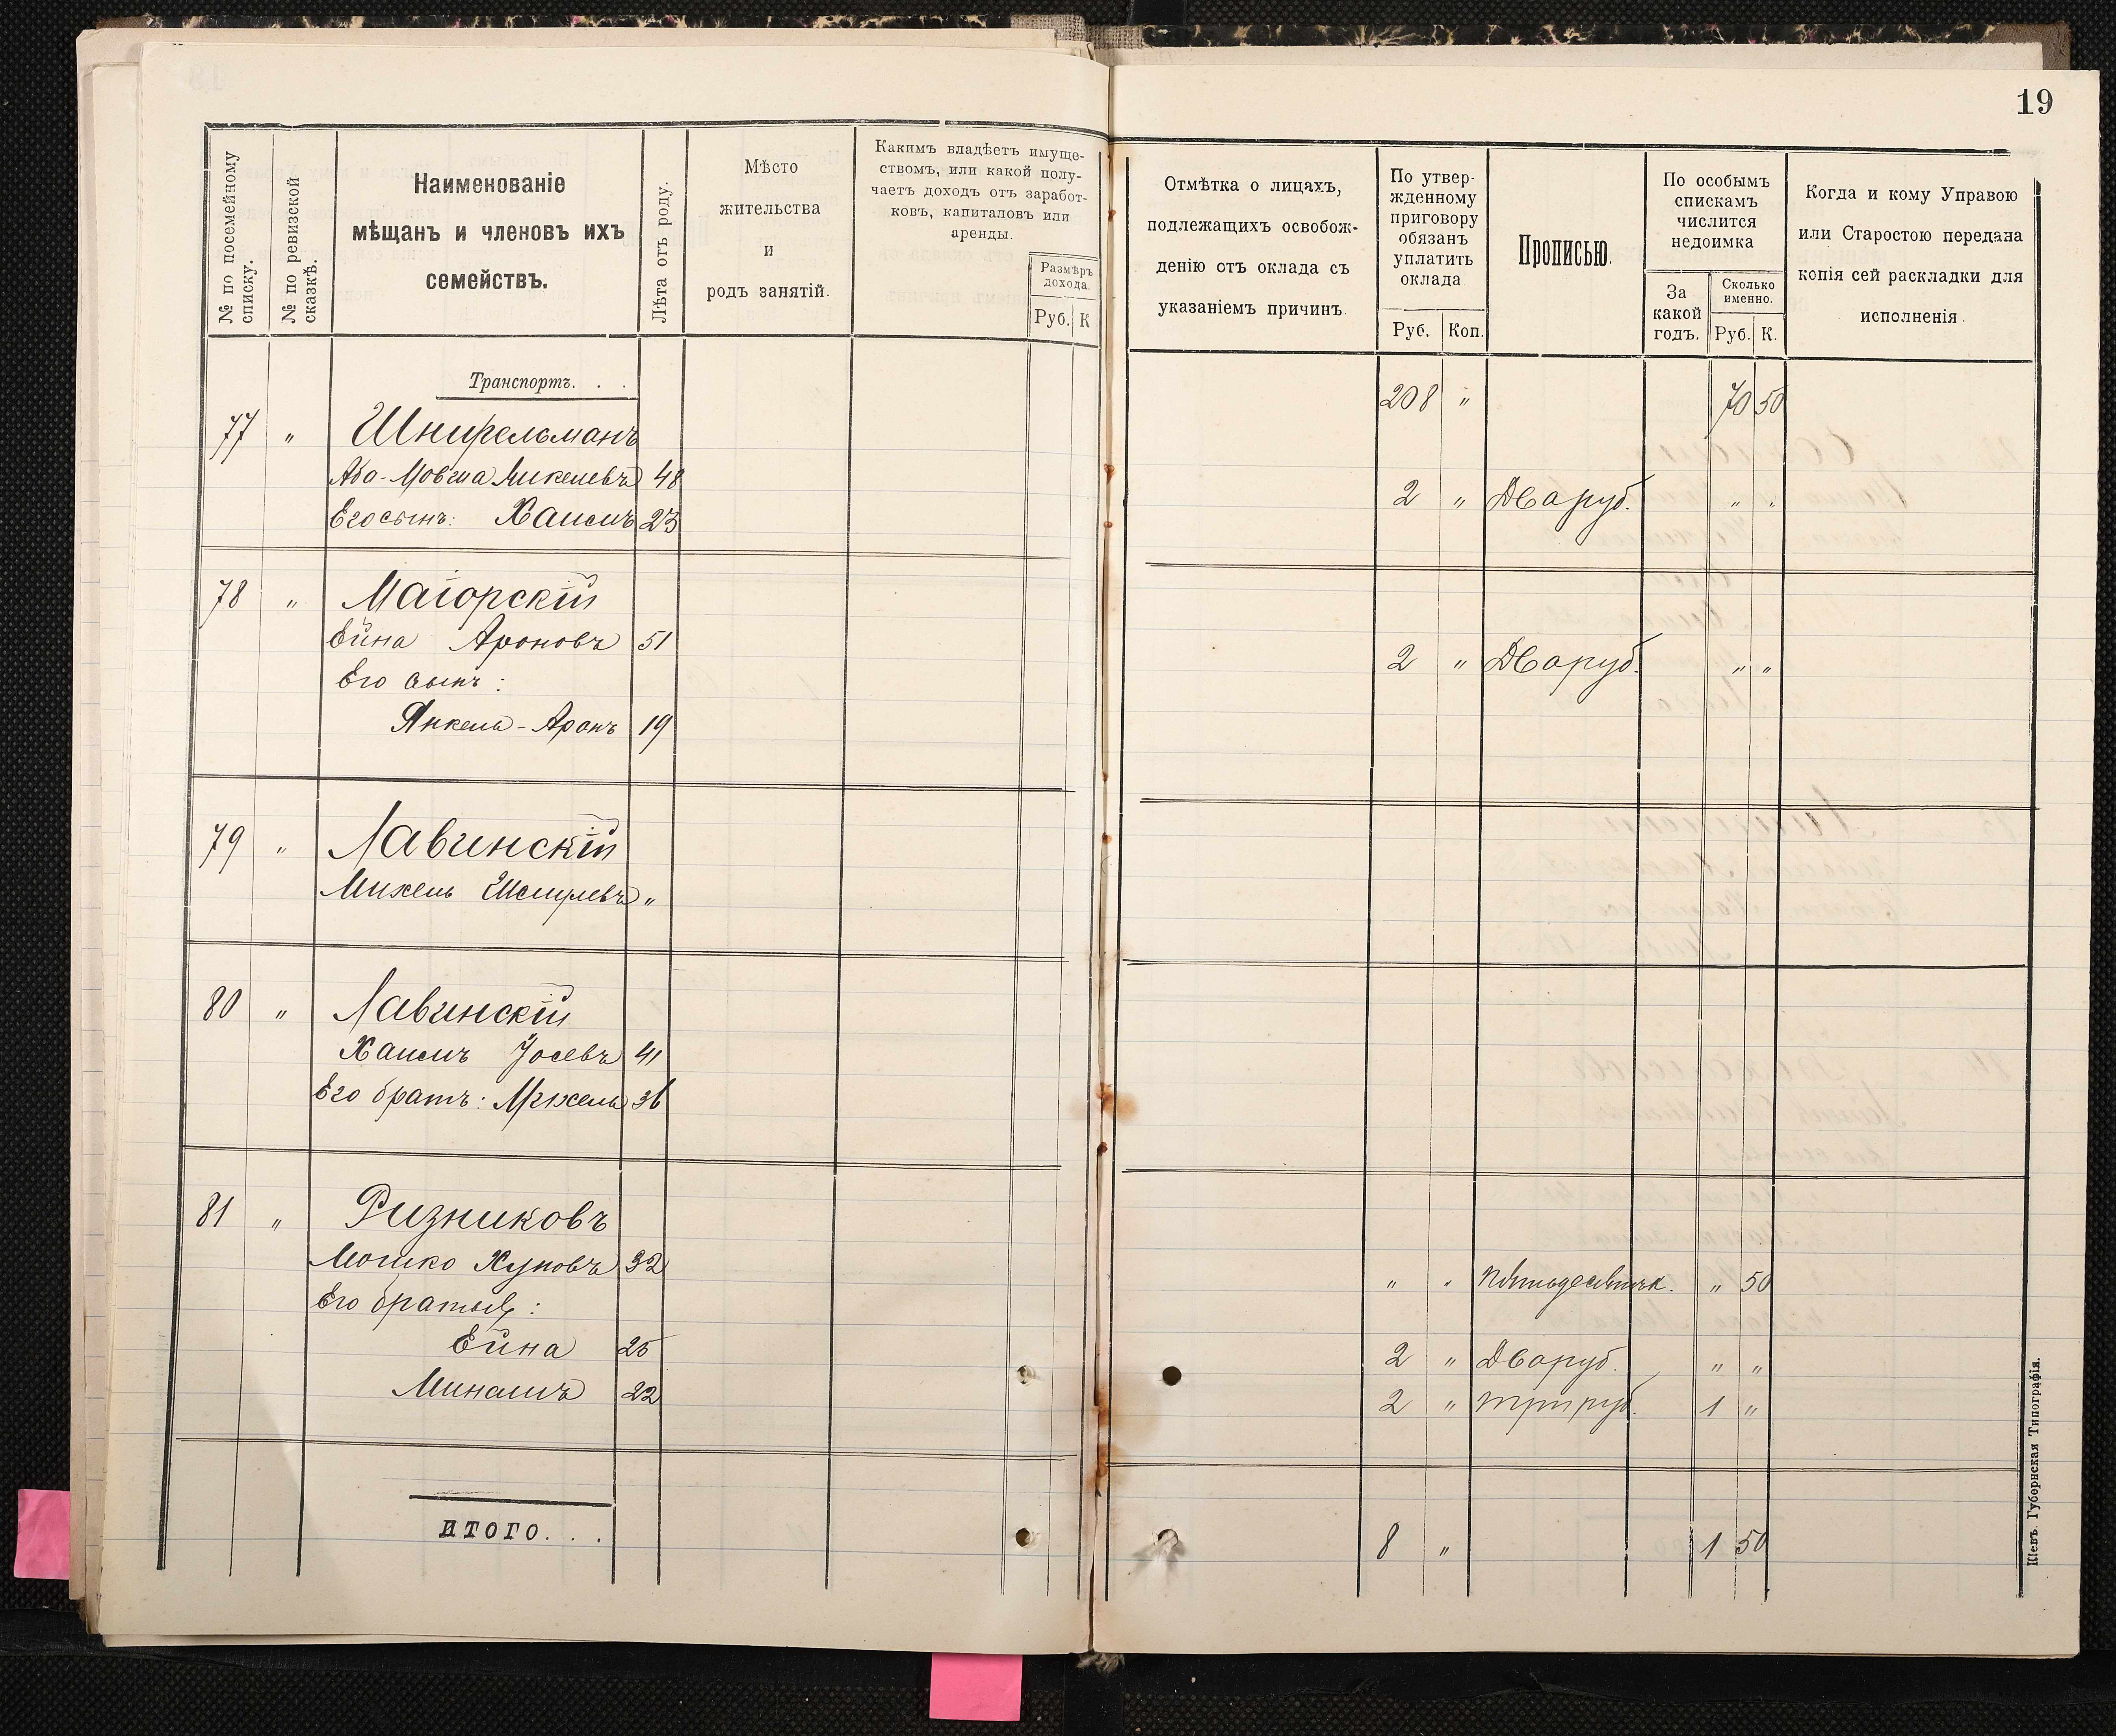 19
№ по посемейному списку.
№ по ревизской сказкѣ.
Наименованіе
мѣщанъ и членовъ ихъ
семействъ.
Лѣта отъ роду.
Мѣсто
жительства
и
родъ занятій.
Какимъ владѣетъ имуще-
ствомъ, или какой полу-
чаетъ доходъ отъ заработ-
ковъ, капиталовъ или
аренды.
Размѣръ
дохода.
Руб. К
Отмѣтка о лицахъ,
подлежащихъ освобож-
денію отъ оклада съ
указаніемъ причинъ.
По утвер-
жденному
приговору
обязанъ
уплатить
оклада
Руб. Коп.
Прописью.
По особымъ
спискамъ
числится
недоимка
За
какой
годъ.
Сколько
именно.
Руб. К.
Когда и кому Управою
или Старостою передана
копія сей раскладки для
исполненія.
Транспортъ. . . 208 " 70 50
77 " Шнирельманъ
Аба-Мовша Микелевъ 48 2 " Два руб. " "
Его сынъ: Хаимъ 23
78 " Маіорскій
Ейна Ароновъ 51 2 " Два руб. " "
Его сынъ:
Янкель-Аронъ 19
79 " Лавинскій
Михель "
80 " Лавинскій
Хаимъ Іосевъ 41
Его братъ: Михель 36
81 " Ризниковъ
Мошко Хуновъ 32 " " Пятьдесятъ к. " 50
Его братья:
Ейна 25 2 " Два руб. " "
Минашъ 22 2 " три руб. 1 "
ИТОГО. . . 8 " 1 50
Кіевъ. Губернская Типографія.